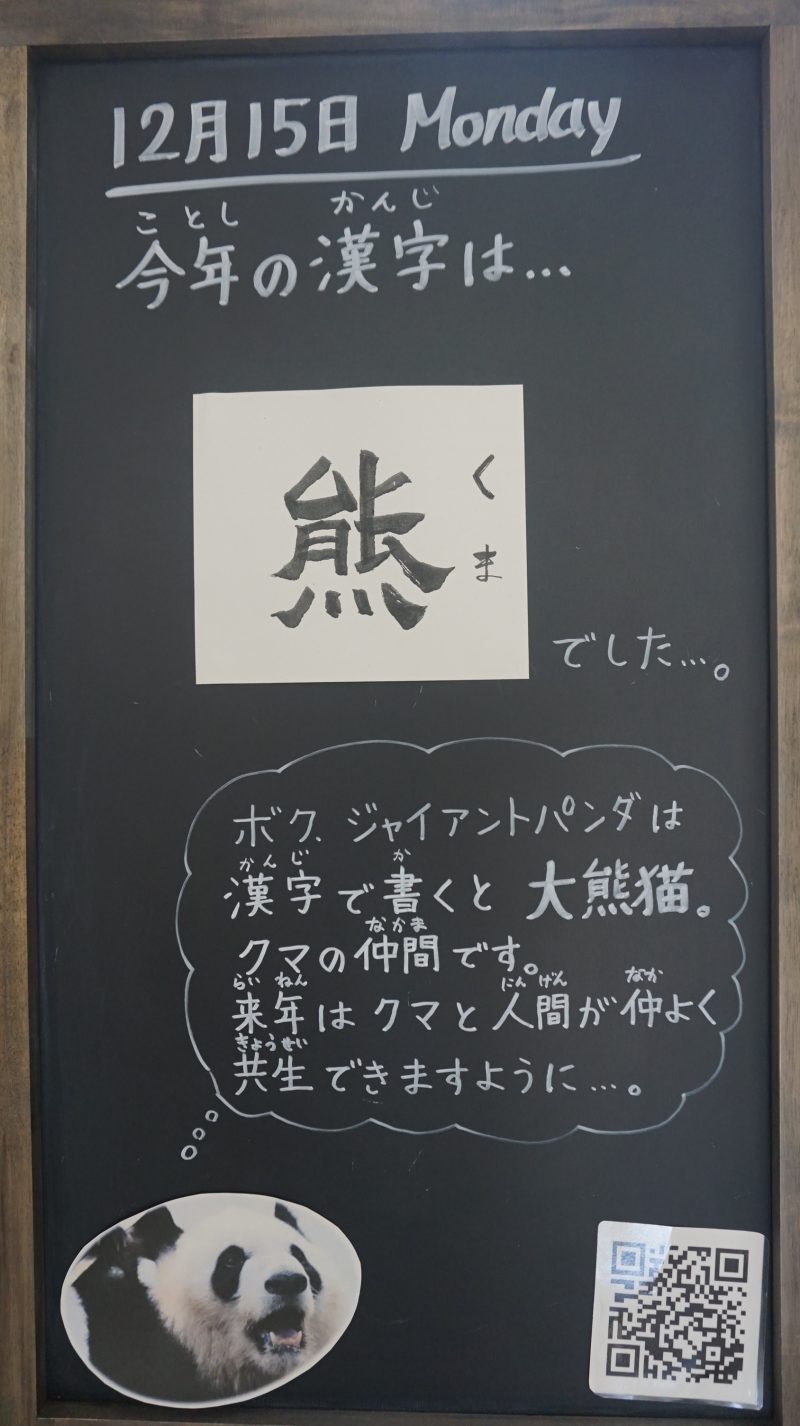 12月15日 Monday
ことし かんじ
今年の漢字は…
熊
くま
でした…。
ボク、ジャイアントパンダは
かんじ か
漢字で書くと 大熊猫。
なかま
クマの仲間です。
らいねん にんげん なか
来年はクマと人間が仲よく
きょうせい
共生できますように…。